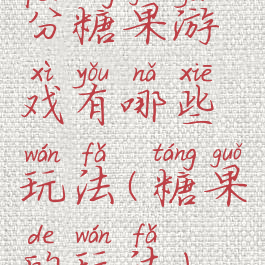 分糖果游
xì yǒu nǎ xiē
戏有哪些
wán fǎ táng guǒ
玩法(糖果
de wán fǎ
的玩法)